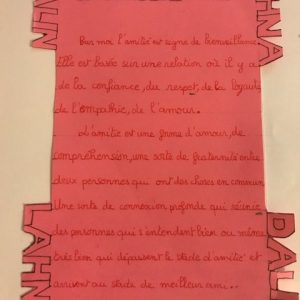 Pour moi l'amitié est signe de bienveillance.
Elle est basée sur une relation où il y a
de la confiance, du respect, de la loyauté
de l'empathie, de l'amour.
L'amitié est une forme d'amour, de
compréhension, une sorte de fraternité entre
deux personnes qui ont des choses en commun
Une sorte de connexion profonde qui réunie
des personnes qui s'entendent bien ou même
très bien qui dépassent le stade d'amitié et
arrivent au stade de meilleur ami..
LAHN
DAL